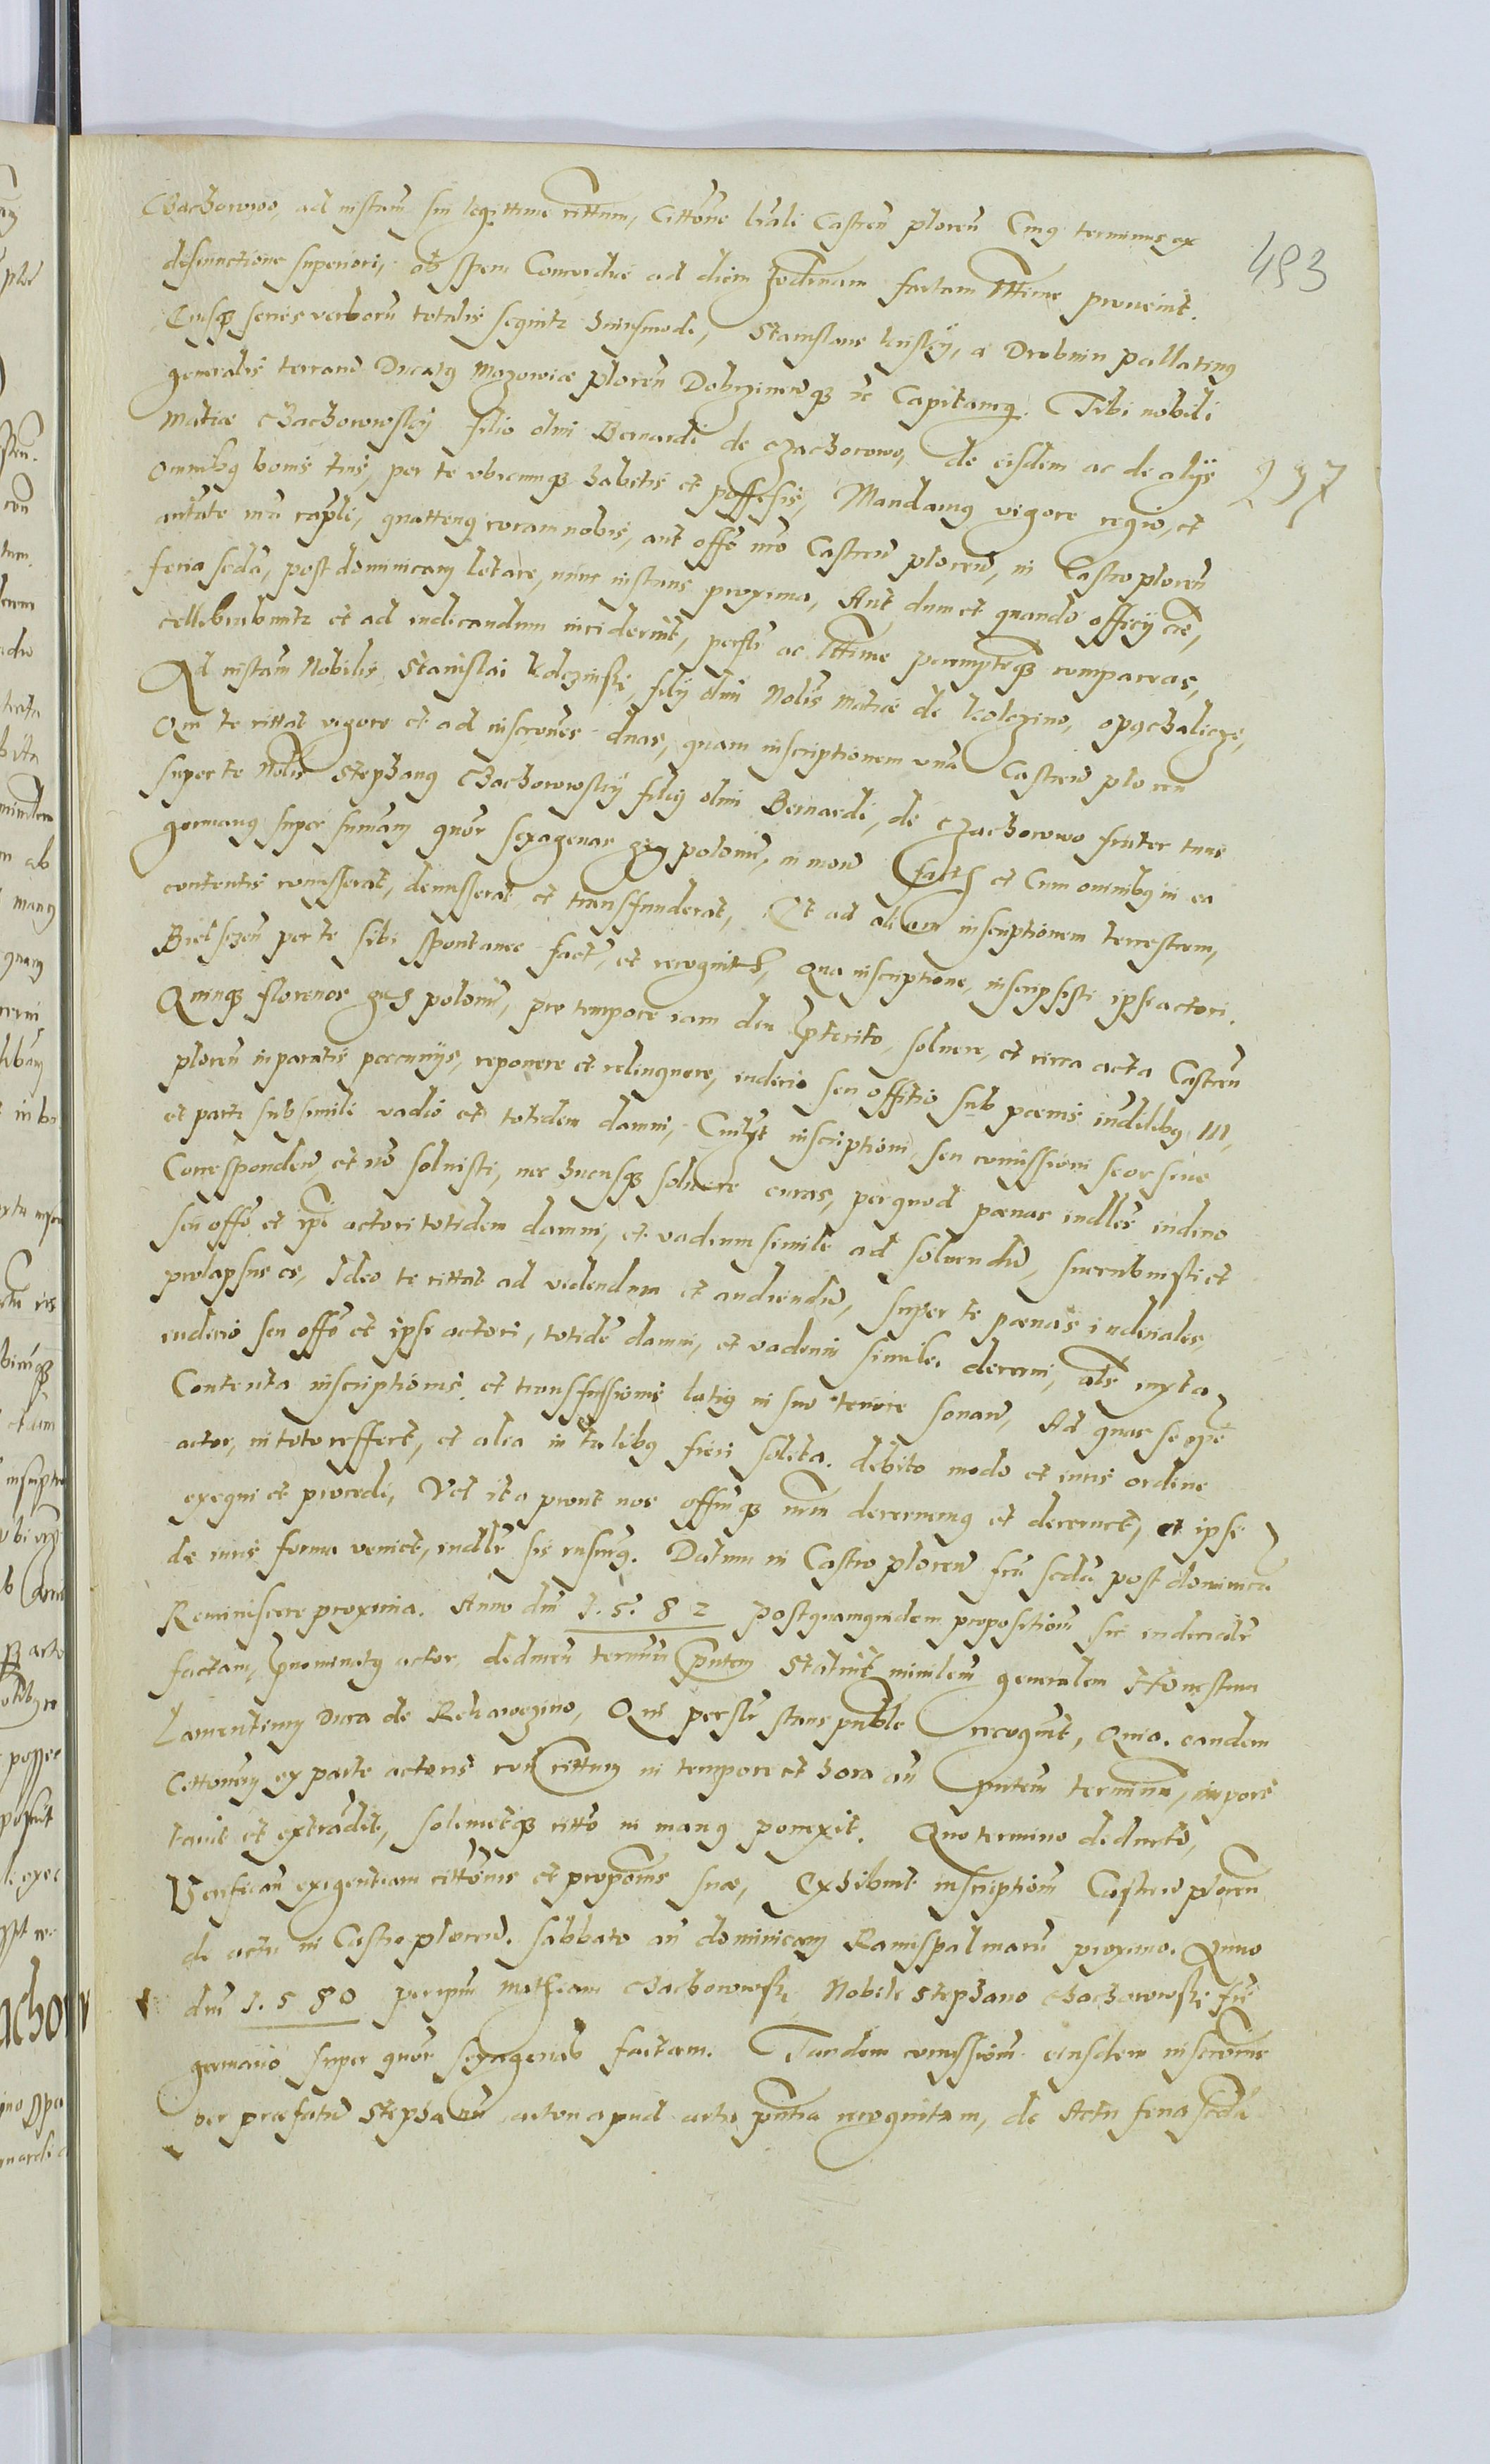 Czachorowo, ad instam sui legittime cittum, Cittone lrali Castren plocen Cuius terminus ex
disiunctione superiori, ob spem Concordiae ad diem hodiernam factam lttime provenit.
Cuiusq series verborum totalis sequitr huiusmodi, Stanislaus Krisky, a Drobnin pallatinus
generalis terrarum Ducatus Mazowiae plocen Dobrzinenq zc Capitaneus. Tibi nobili
Mathiae Czachorowsky filio olim Bernardi de Czachorowo, de eisdem ac de alijs
omnibus bonis tuis, per te ubicunq habitis et possessis, Mandamus vigore regio, et
autate nra capli, quattenus coram nobis, aut offo nro Castren plocen, in Castro plocen
feria scda, post dominicam letare, nunc instans proxima, Aut dum et quando officij cae,
cellebrabuntr et ad iudicandum inciderint, perslr ac lttime peremptieq compareas,
Ad instam Nobilis Stanislai Kolczinski, filij olim Nolis Mathiae de Kolczino, opachalicze,
Qui te cittat vigore et ad inscrones duas, quam inscriptionem una Castren plocen
super te Nolis Stephanus Czachorowsky filius olim Bernardi, de Czachorowo frater tuus
germanus super sumam quor sexagenar gros polonic, in mon fact et Cum omnibus in ea
contentis comisserat, demisserat et transfunderat, Et ad aliam inscriptionem terrestrem,
Bielscen per te sibi spontanee fact, et recognit, Qua inscriptione, inscripsisti ipsi actori.
Quinq florenos gros polonic, pro tempore iam diu pterito, solvere, et circa acta Castren
plocen in paratis pecunijs, reponere et relinquere, iudicio seu offitio sub poenis iudilibus III,
et parti sub simili vadio et totidem damni, Cui inscriptioni seu comissioni seorsive
Correspondend et no solvisti, nec hucusq solvere curas, per quod poenas iudles iudicio
seu offo et ipi actori totidem damni, et vadium simile ad solvendum, succubuisti et
prolapsus es, Ideo te cittat ad videndum et audiendum, super te poenas iudiciales,
iudicio seu offo et ipsi actori, totide damni, et vadium simile. decerni, als iuxta
Contenta inscriptionis et transfussionis latius in suo tenore sonan, Ad quas se ipse
actor, in toto reffert, et alia in talibus fieri solita. debito modo et iuris ordine
exequi et procedi, Vel ita prout nos offiuq nrm decernemus et decernet, et ipse
de iuris forma veniet, iudlr sis rnsurus. Datum in Castro plocen fria scda post dominica
Reminiscere proxima. Anno dni 1.5.8 2 Postquamquidem propositionem sic iudicialr
factam, pnominatus actor deducen termin pntem Statuit minilem generalem Honestum
Laurentium Dura de Rekawczino, Qui perslr stans publice recognit, quia. eandem
Cittonem ex parte actoris con cittum in tempore et hora an pntem terminum, impor
tavit et extradit, solimetq citto in manus porrexit. Quo termino deducto,
Verificau exigentiam cittonis et propositionis suae, Exhibuit inscriptionem Castren plocen
de actu in Castro plocen. Sabbato an dominicam Ramispalmarum proximo. Anno
dni 1.5 8 0 per ipsum Mathiam Czachorowski Nobili Stephano Czachorowski fri
germano super quor sexagenis factam. Tandem comissionem eiusdem inscronis
per praefatum Stephanum actori apud acta pntia recognitam, de Actu feria scda
493
297